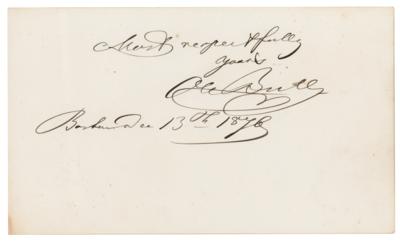 Most respectfully
yours
Ole Bull
Boston Dec 13th 1876